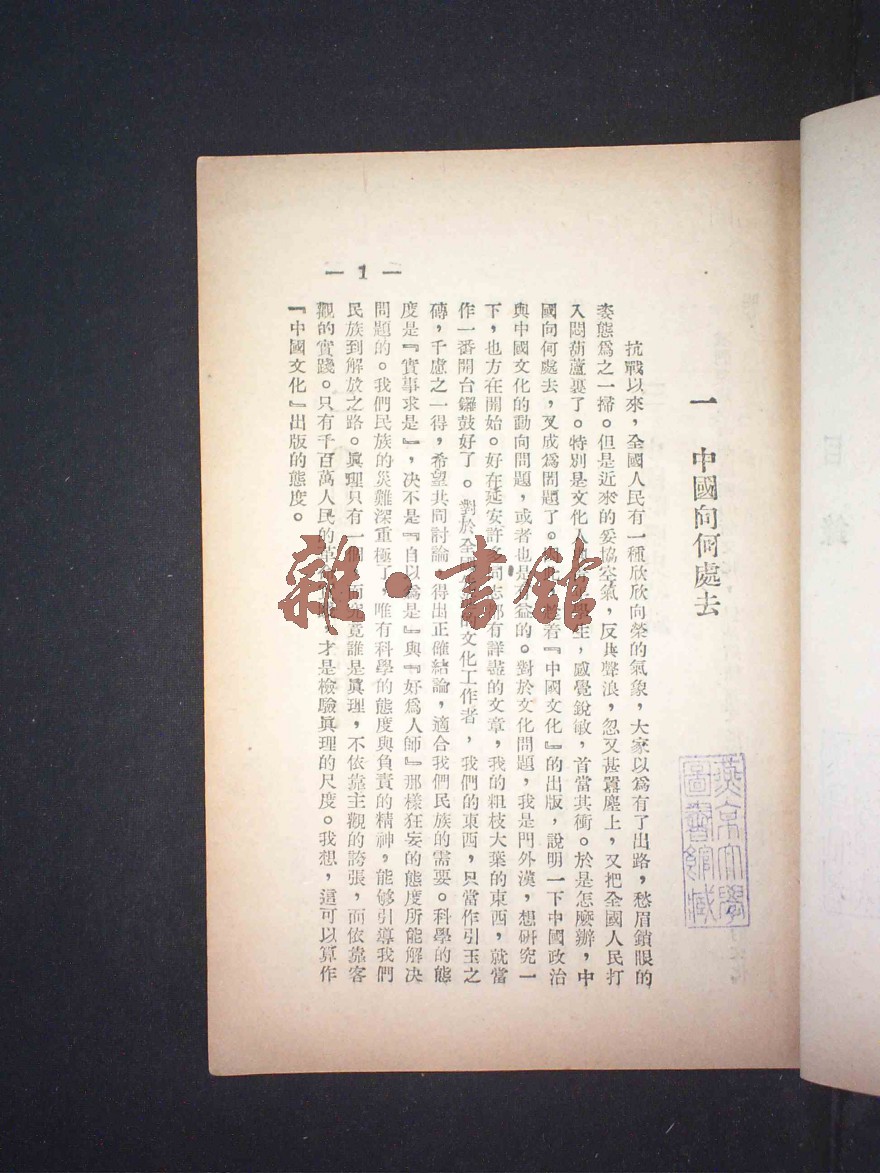 一 中國向何處去
抗戰以來,全國人民有一種欣欣向榮的氣象,大家以爲有了出路,愁眉鎖眼的
姿態爲之一掃。但是近來的妥協空氣,反共聲浪,忽又甚囂塵上,又把全國人民打
入悶葫蘆裏了。特別是文化人 學生,感覺銳敏,首當其衝。於是怎麼辦,中
國向何處去,又成爲問題了。 着『中國文化』的出版,說明一下中國政治
與中國文化的動向問題,或者也是有益的。對於文化問題,我是門外漢,想研究一
下,也方在開始。好在延安許多同志都有詳盡的文章,我的粗枝大葉的東西,就當
作一番開台鑼鼓好了。對於全國 的文化工作者,我們的東西,只當作引玉之
磚,千慮之一得,希望共同討論,得出正確結論,適合我們民族的需要。科學的態
度是『實事求是』,決不是『自以爲是』與『好爲人師』那樣狂妄的態度所能解决
問題的。我們民族的災難深重極了,唯有科學的態度與負責的精神,能够引導我們
民族到解放之路。眞理只有一個,而究竟誰是眞理,不依靠主觀的誇張,而依靠客
觀的實踐。只有千百萬人民的革 ,才是檢驗眞理的尺度。我想,這可以算作
『中國文化』出版的態度。
— 1 —
燕京大學
圖書館藏
雜·書館